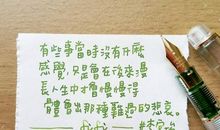 有些事當時沒有什麼
感覺，只是會在後來漫
長人生中才會慢慢得
體會出那種難過的悲哀。